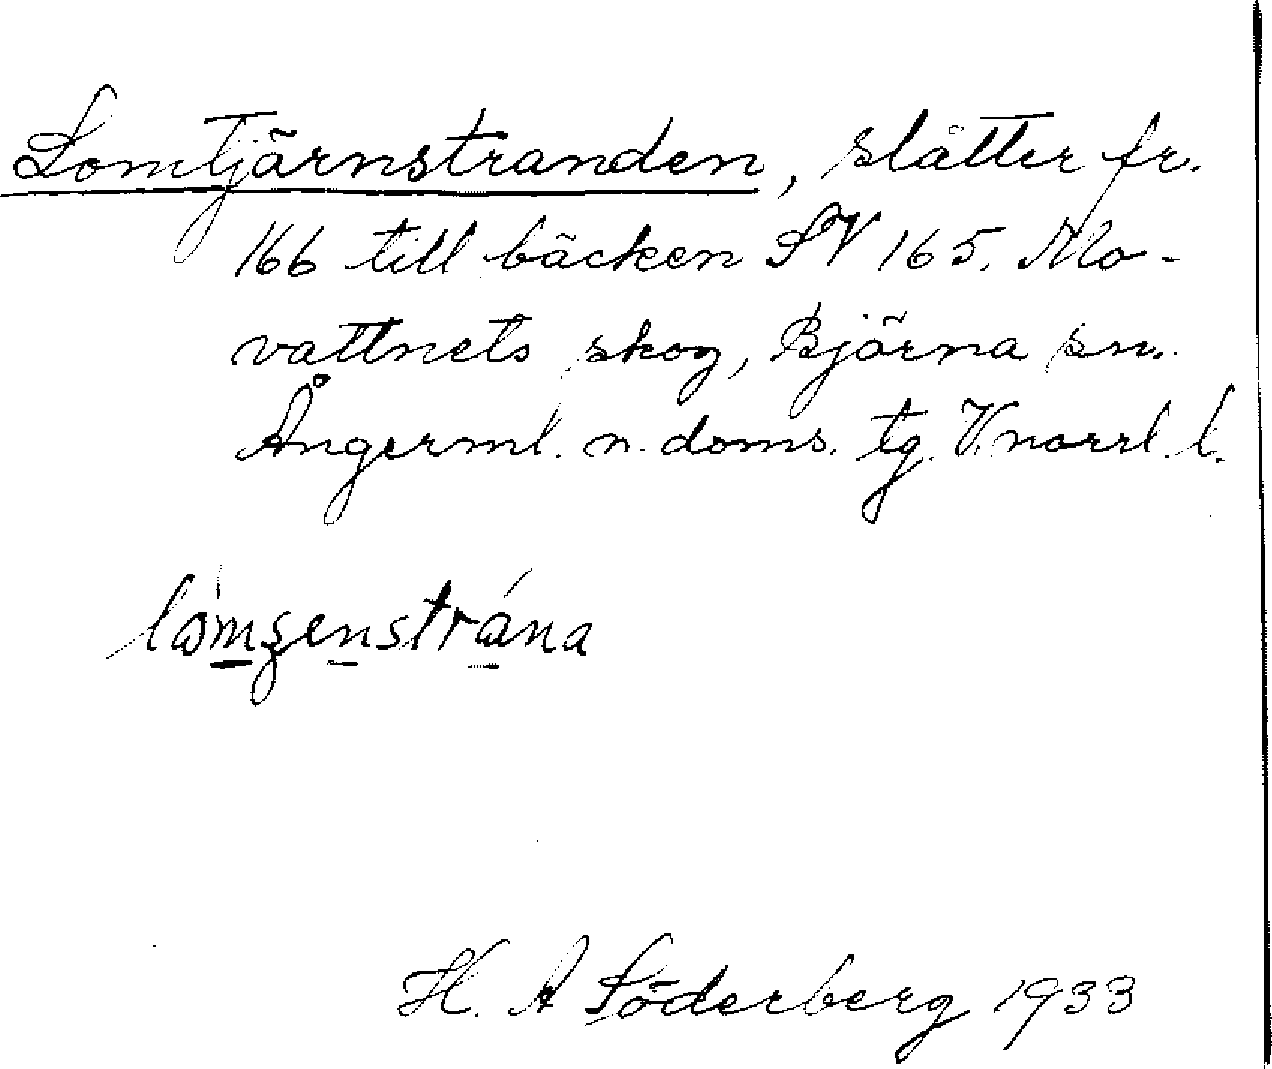 Lomtjärnstranden, slåtter fr.
166 till bäcken SV 165. Mo-
vattnets skog, Björna sn.
Ångerml. n. doms. tg. V.norrl. l.
H. A Söderberg 1933